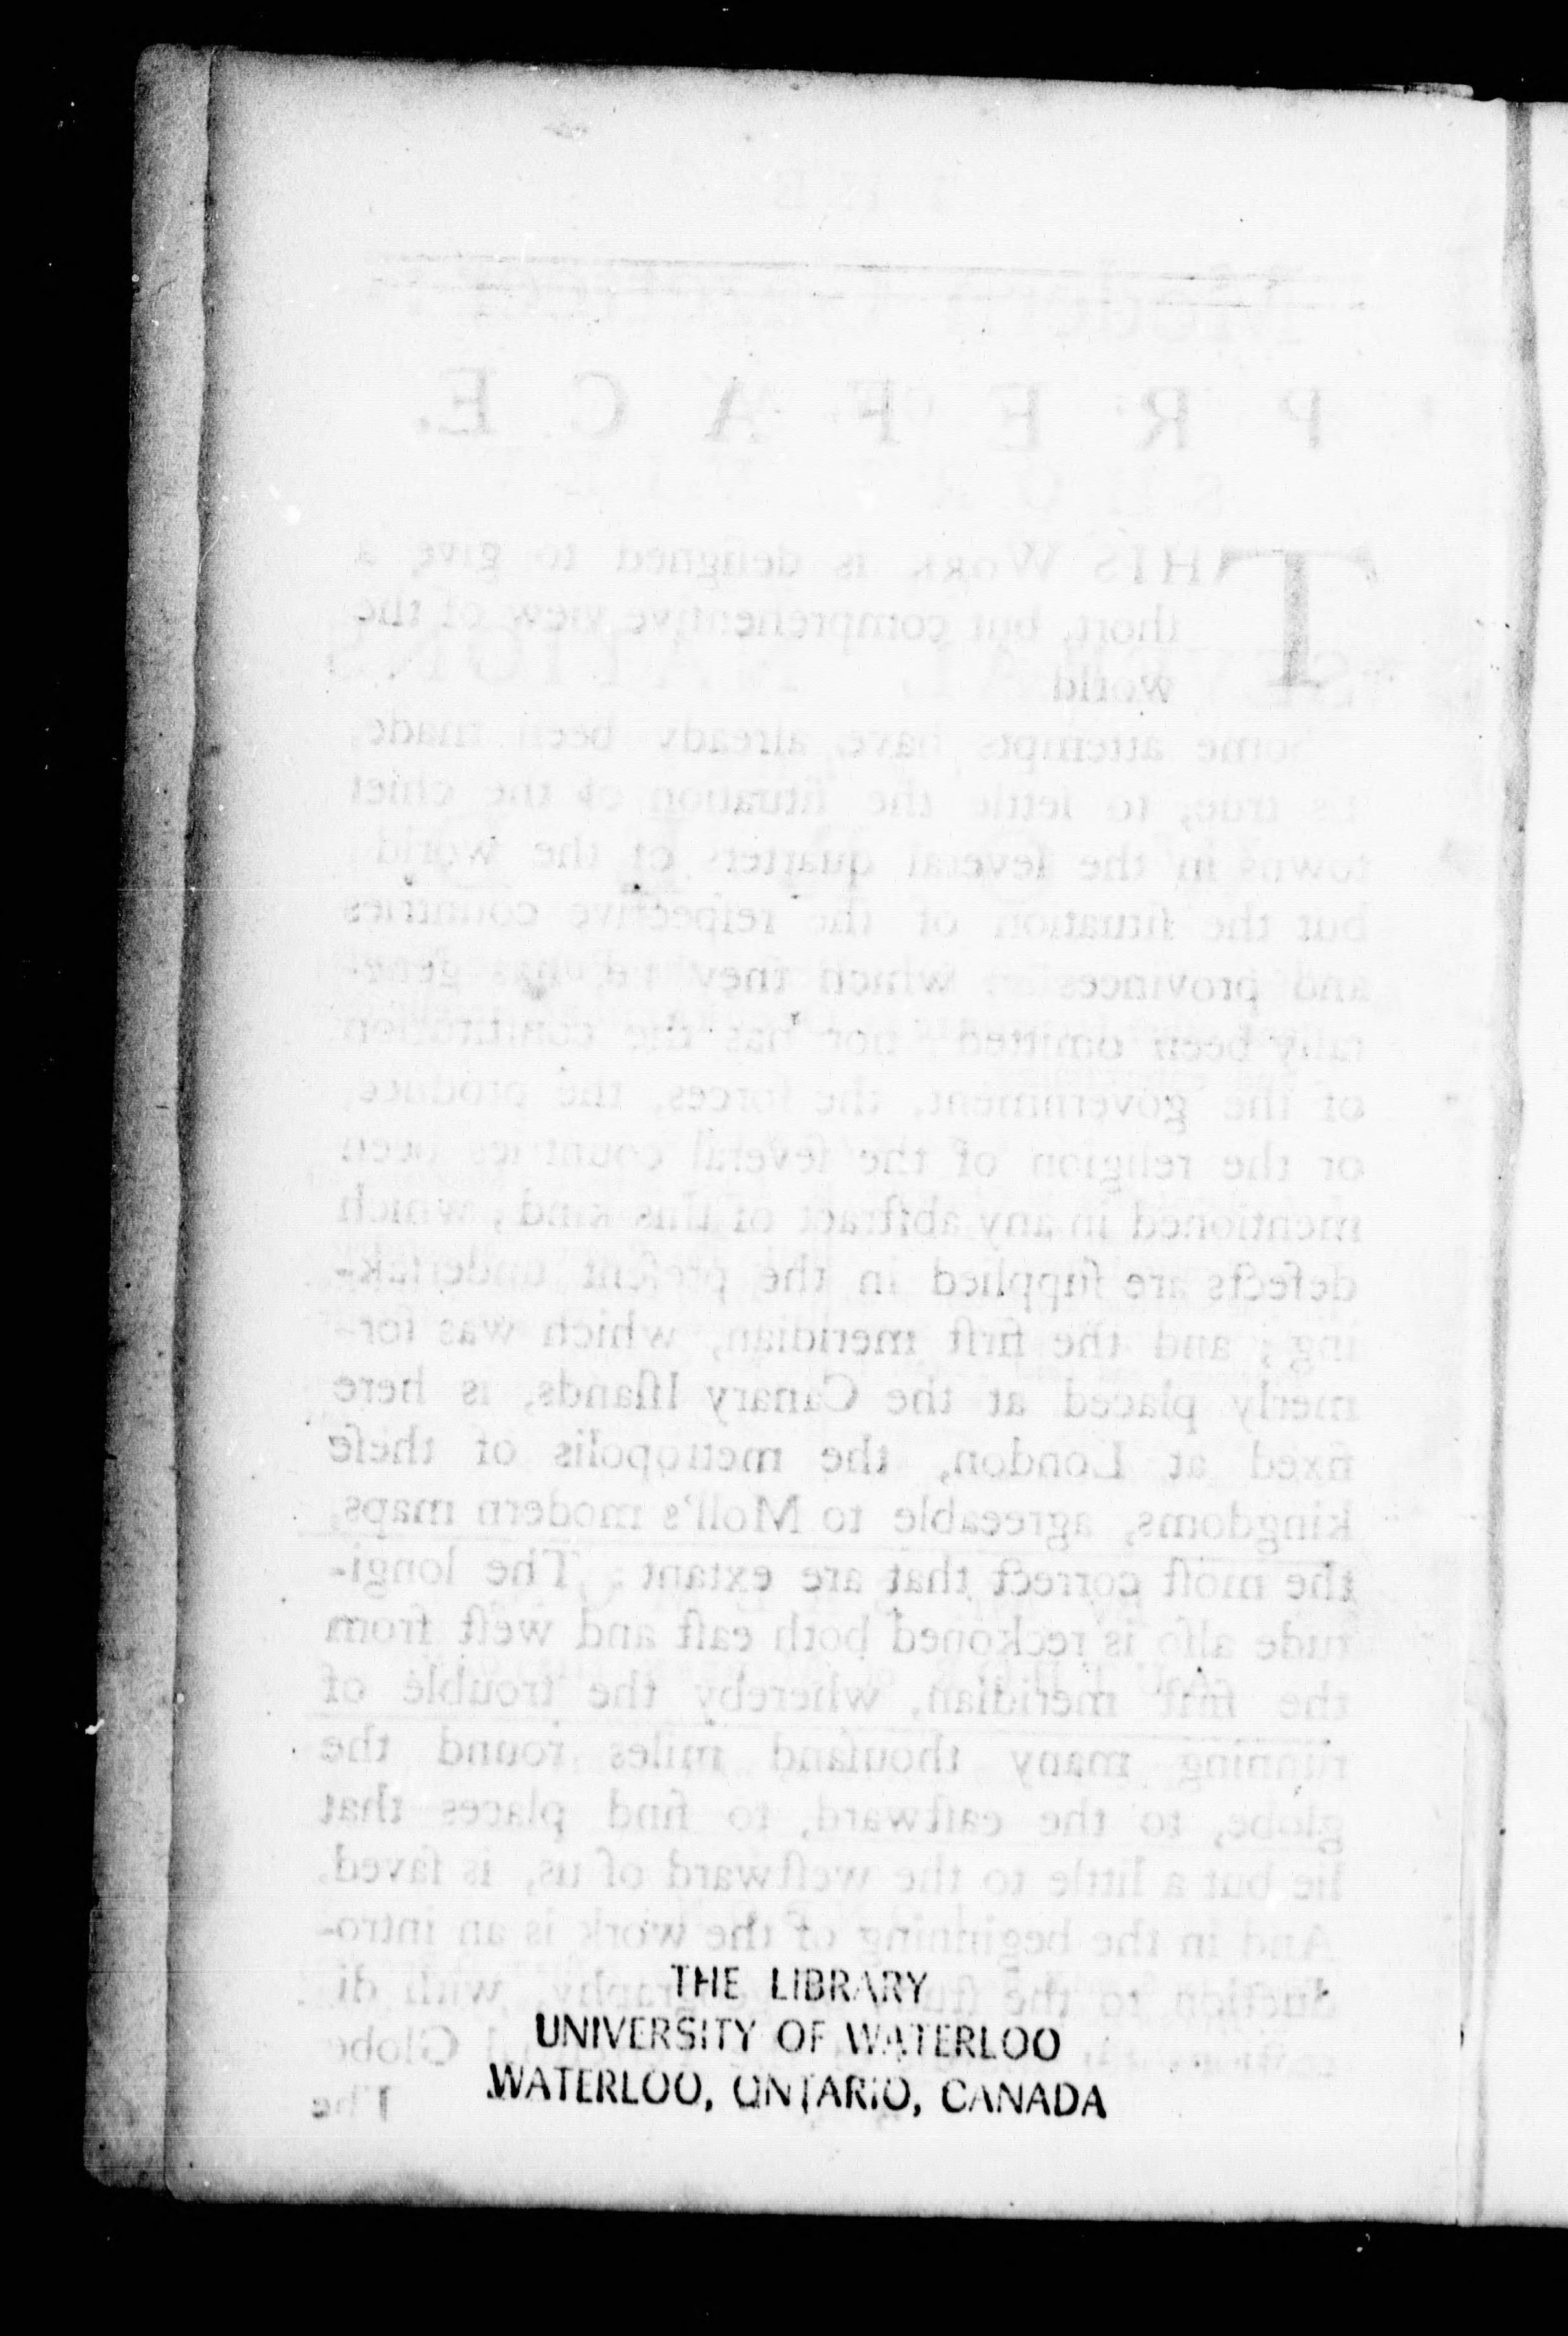 PREFACE.
THIS WORK is deſigned to give a
ſhort, but comprehenſive view of the
world
Some attempts have already been made,
'tis true, to ſettle the ſituation of the chief
towns in the ſeveral quarters of the world
but the ſituation of the reſpective countries
and provinces which they gene-
rally been omitted nor has the conſtitution
of the government, the forces, the produce,
or the religion of the ſeveral countries been
mentioned in any abſtract of this kind; which
defects are ſupplied in the preſent undertak-
ing; and the firſt meridian, which was for-
merly placed at the Canary Iſlands, is here
fixed at London, the metropolis of theſe
kingdoms, agreeable to Moll's modern maps,
the moſt correct that are extant: The longi-
tude alſo is reckoned both eaſt and weſt from
the firſt meridian, whereby the trouble of
running many thouſand miles round the
globe, to the eaſtward, to find places that
lie but a little to the weſtward of us, is ſaved.
And in the beginning of the work is an intro-
duction to the with di-
Globe
The
THE LIBRARY
UNIVERSITY OF WATERLOO
WATERLOO, ONTARIO, CANADA